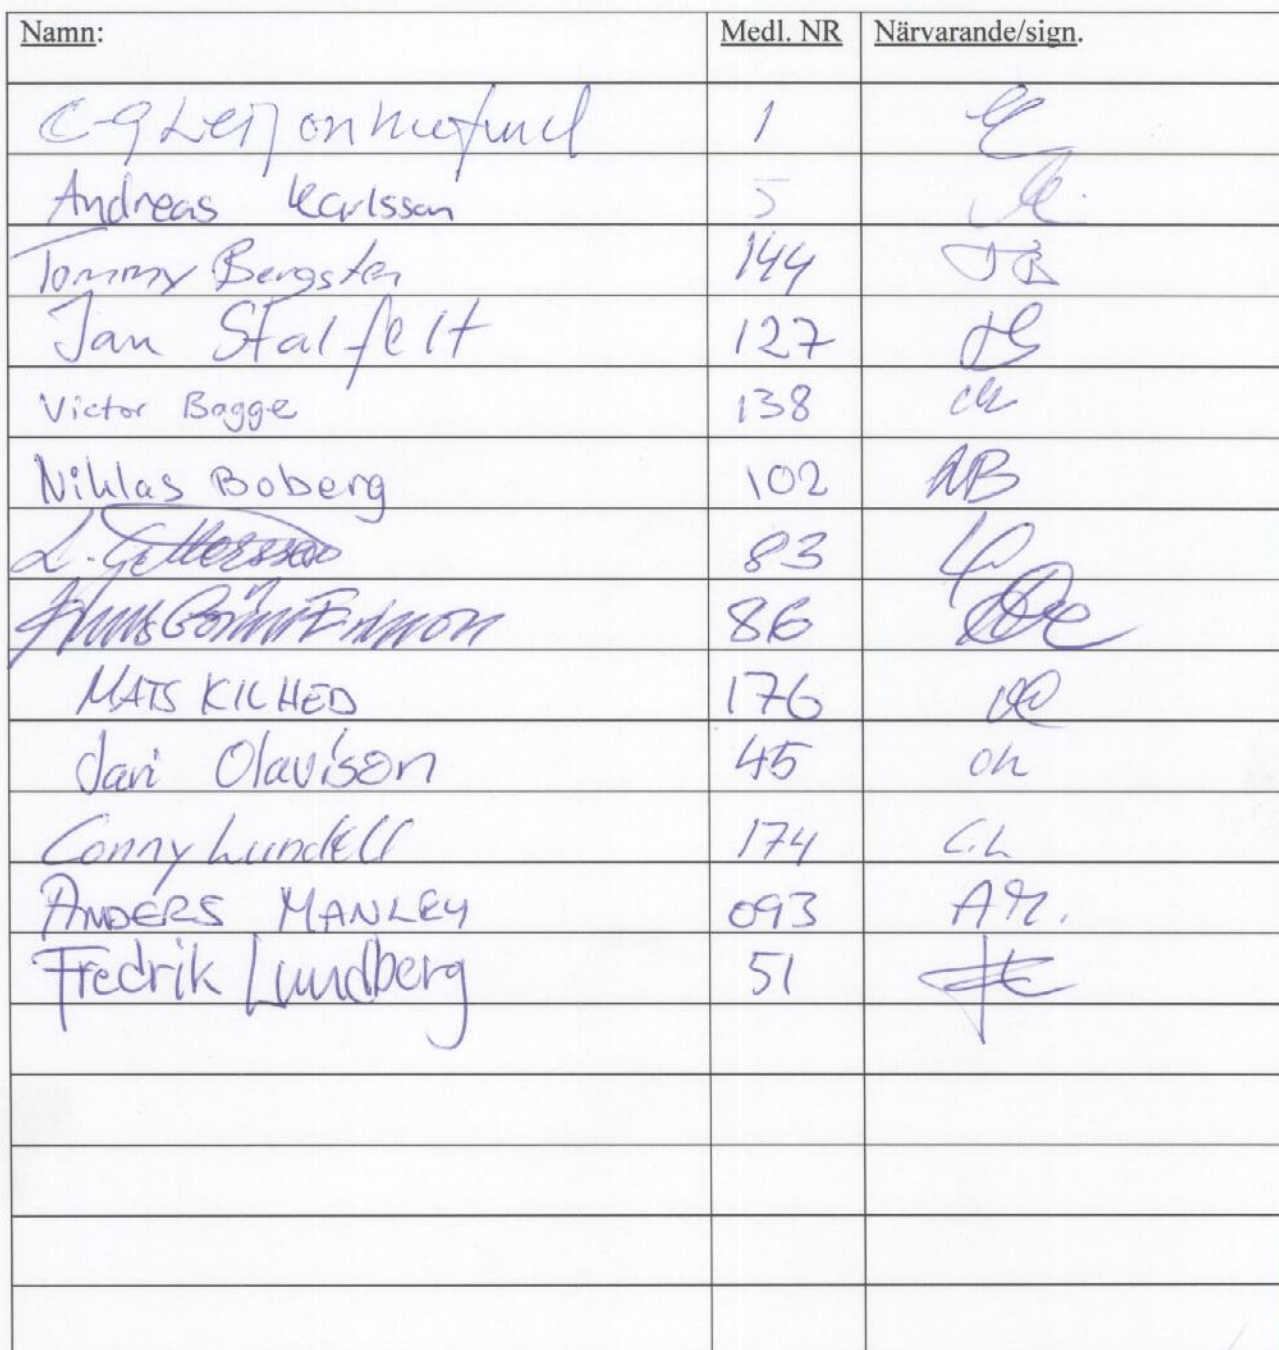 Namn: Medl. NR Närvarande/sign.
C-G Leijonhufvud 1
Andreas Karlsson 5
Tommy Bergsten 144 TB
Jan Stalfelt 127 JS
Victor Bagge 138
Niklas Boberg 102 NB
L. 83
86
MATS KILHED 176
Jari Olavison 45
Conny Lundell 174 C.L
ANDERS MANLEY 093 AM.
Fredrik Lundberg 51